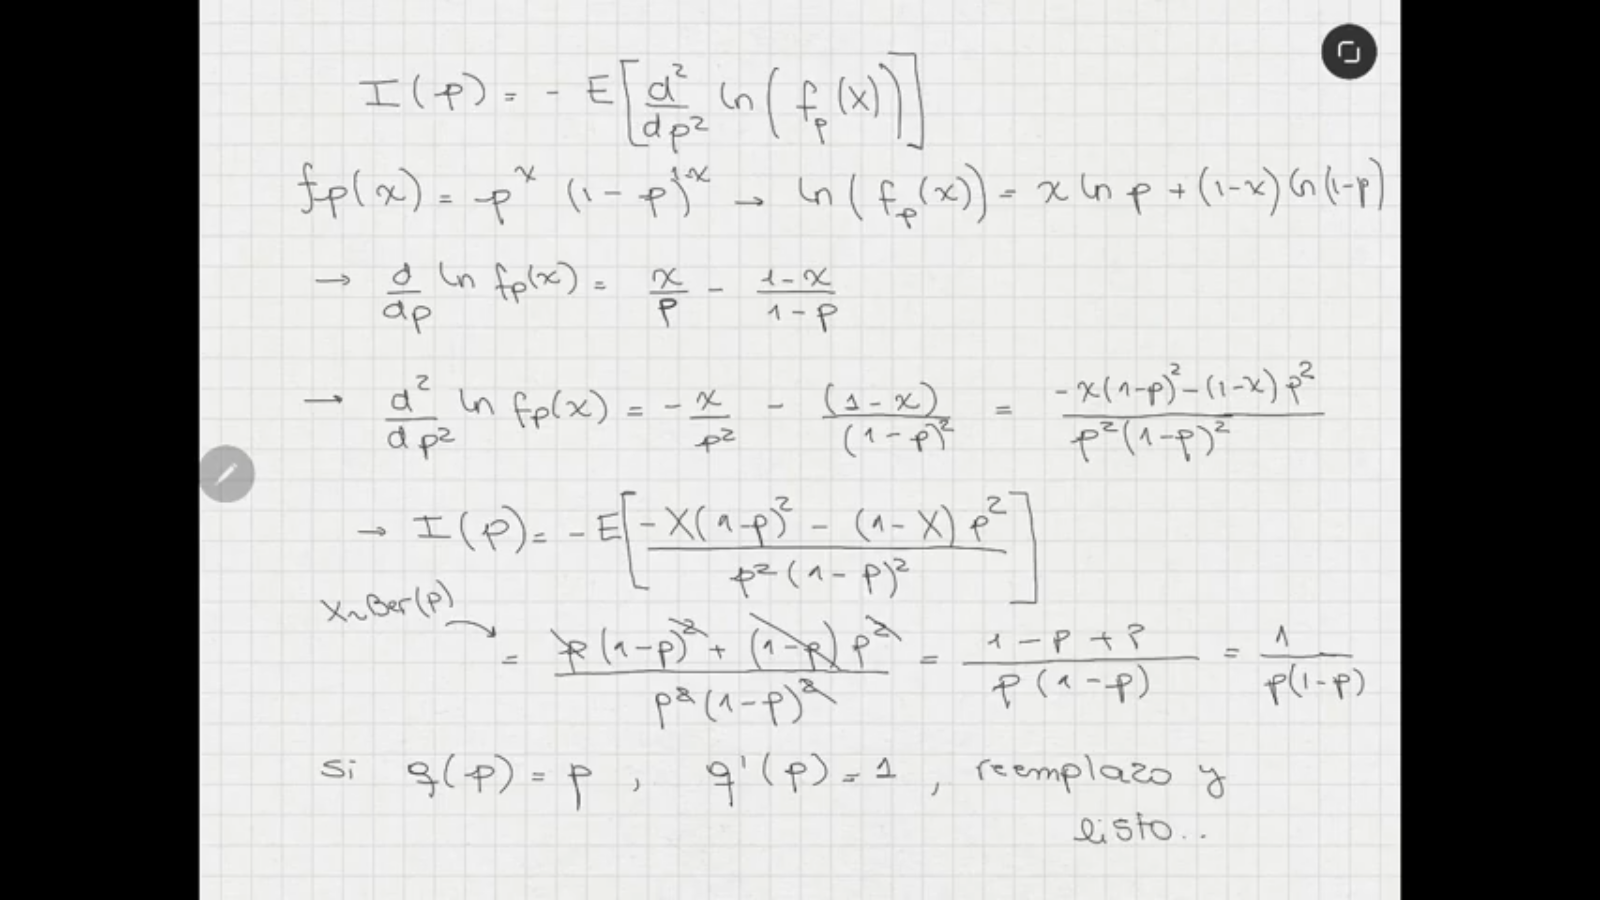 I(p) = - E[d²/dp² ln(f_p(X))]
f_p(x) = p^x (1-p)^{1-x} → ln(f_p(x)) = x ln p + (1-x) ln(1-p)
→ d/dp ln f_p(x) = x/p - (1-x)/(1-p)
→ d²/dp² ln f_p(x) = - x/p² - (1-x)/(1-p)² = (-x(1-p)² - (1-x)p²)/(p²(1-p)²)
→ I(p) = - E[(-X(1-p)² - (1-X)p²)/(p²(1-p)²)]
X~Ber(p)
= (p(1-p)² + (1-p)p²)/(p²(1-p)²) = (1-p+p)/(p(1-p)) = 1/(p(1-p))
si q(p) = p , q'(p) = 1 , reemplazo y
listo..